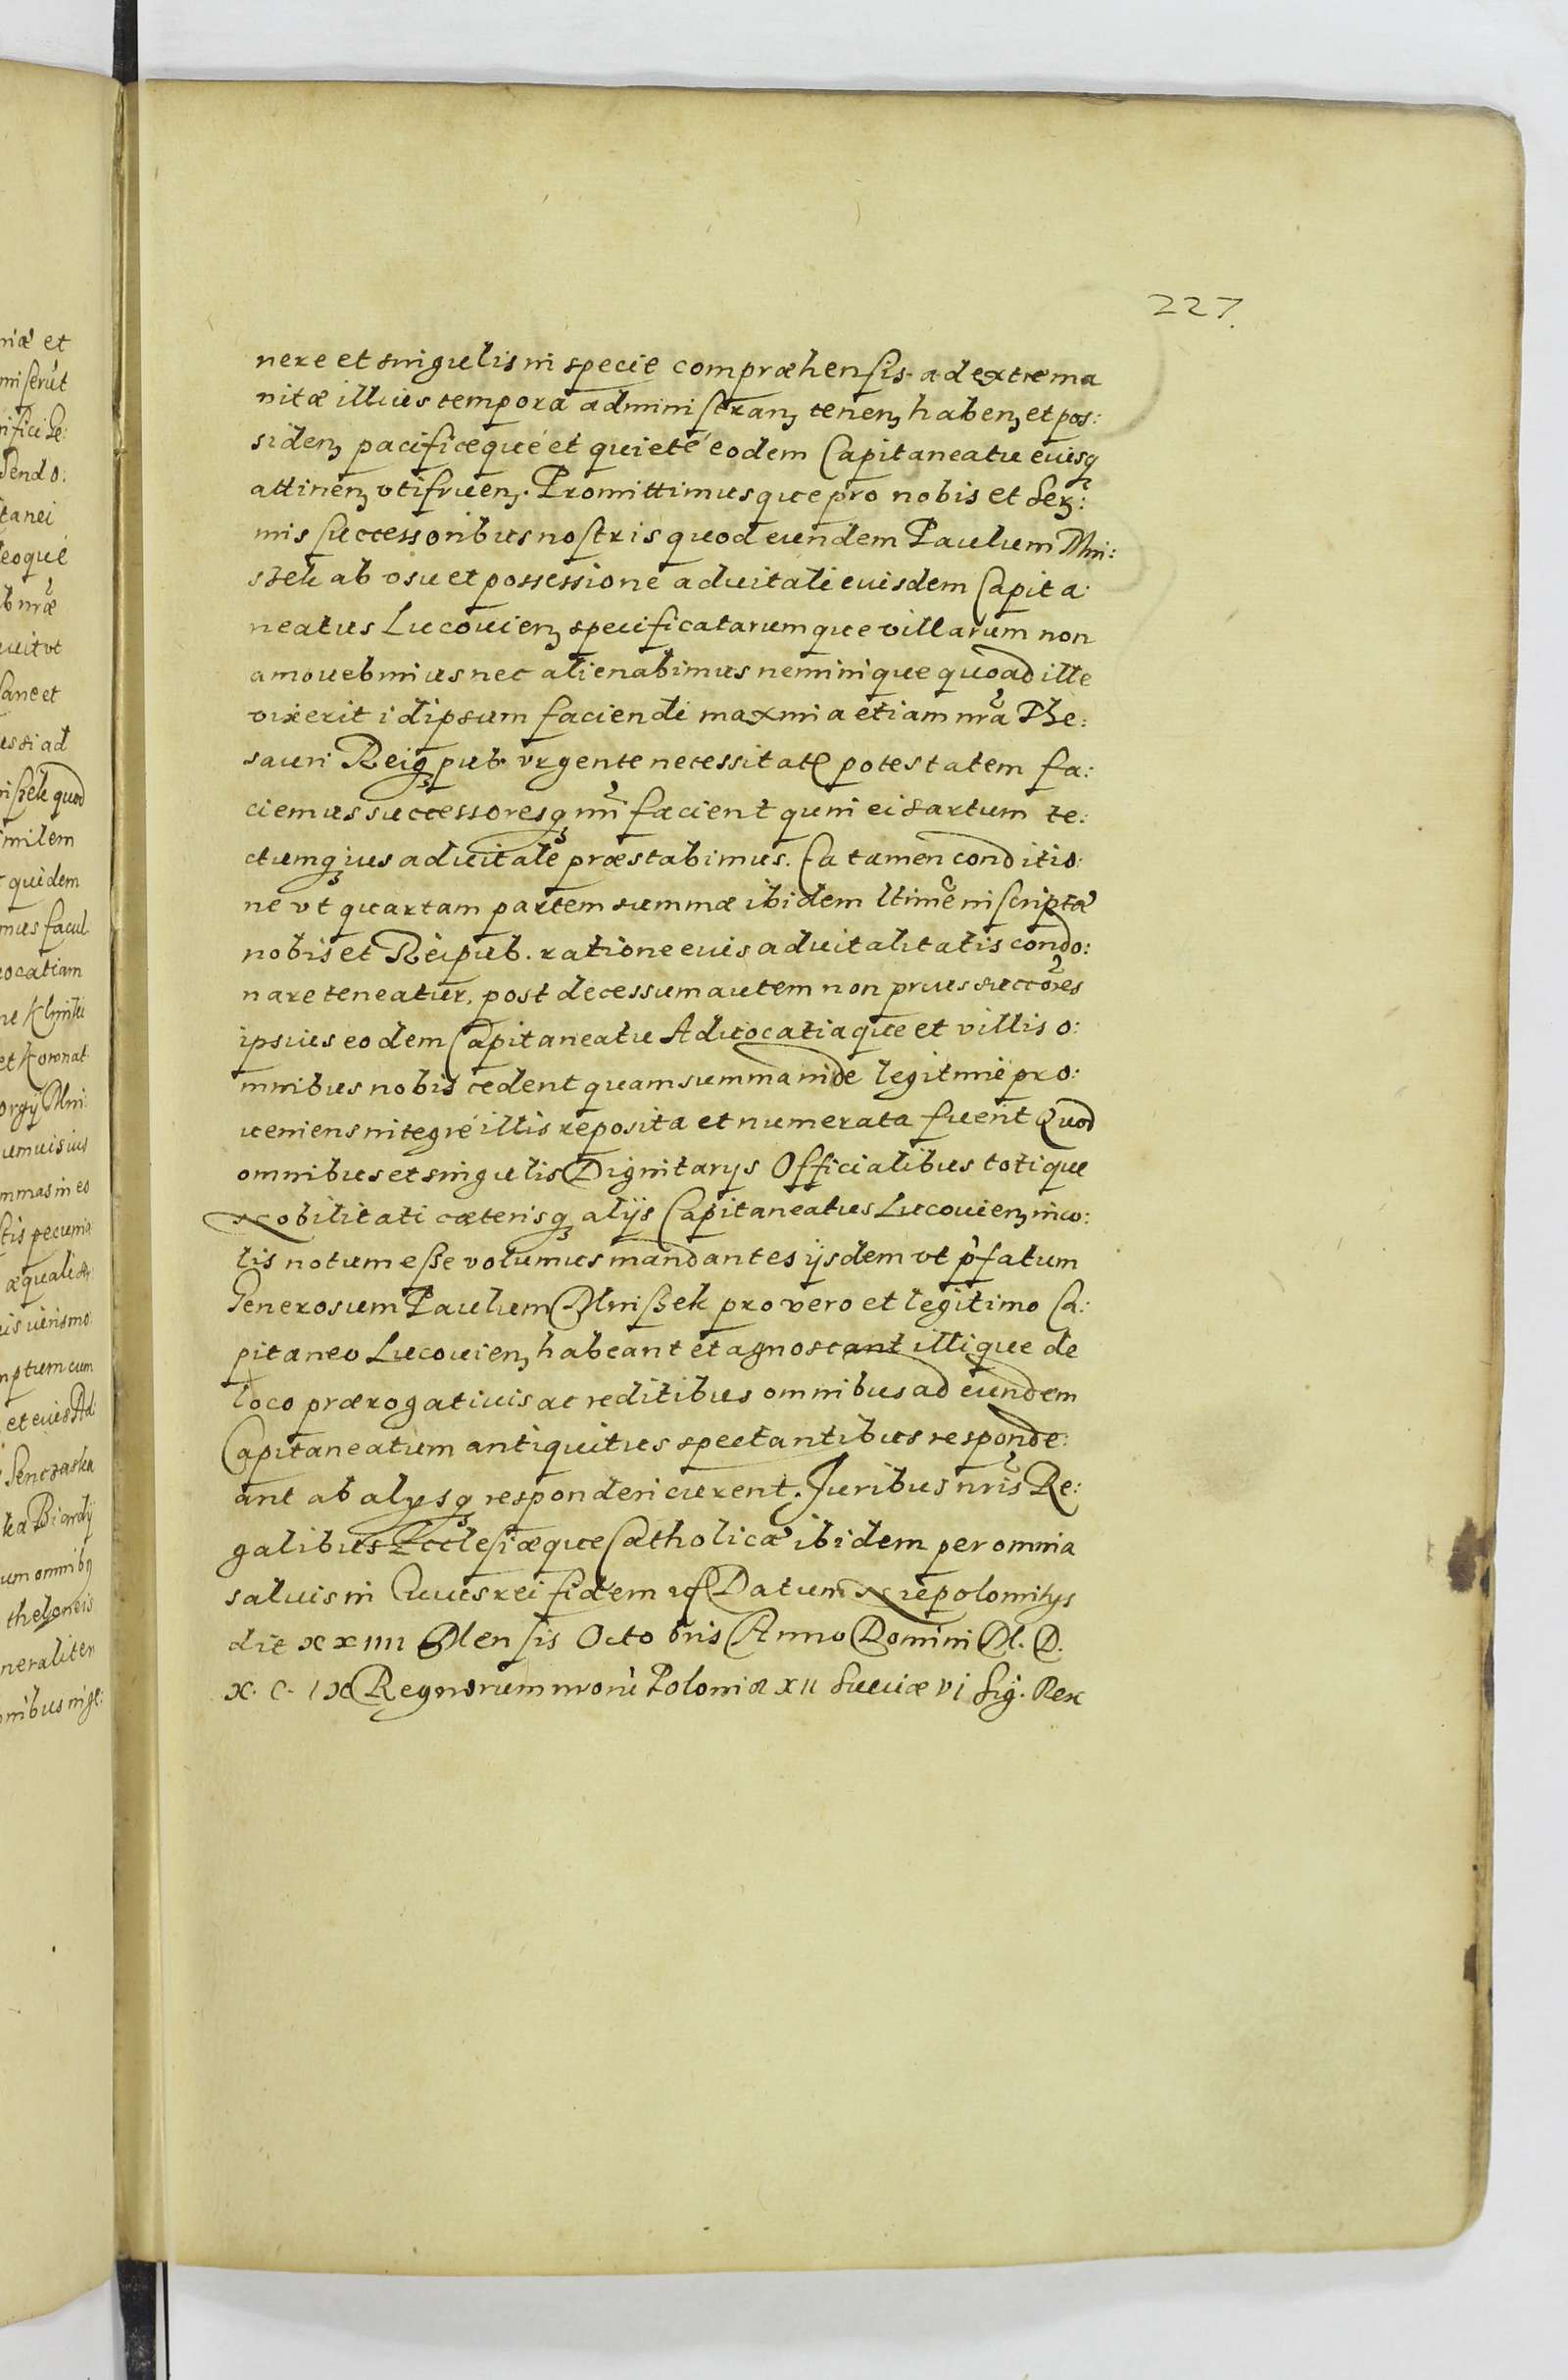 227.
nere et singulis in specie compræhensis ad extrema
vitæ illius tempora administranʒ tenenʒ habenʒ et pos:
sidenʒ pacificequé et quieté eodem Capitaneatu eiusq
attinenʒ vtifruenʒ. Promittimusque pro nobis et Serʒ:
mis successoribus nostris quod eundem Paulum Mni:
szek ab vsu et possessione aduitali eiusdem Capita:
neatus Lucouienʒ specificatarumque villarum non
amouebimus nec alienabimus neminique quoad ille
vixerit idipsum faciendi maxima etiam nrã The:
sauri Reiqʒ pub. vrgente necessitate potestatem fa:
ciemus successoresqʒ nri facient quin ei sartum te:
ctumqʒ ius aduitale præstabimus. Ea tamen conditio:
ne vt quartam partem summæ ibidem ltimè inscriptæ
nobis et Reipub. ratione eius aduitalitatis condo:
nare teneatur, post decessum autem non prius succores
ipsius eodem Capitaneatu Aduocatiaque et villis o:
mnibus nobis cedent quam summa inde legitimè pro:
ueniens integré illis reposita et numerata fuerit Quod
omnibus et singulis Dignitarys Officialibus totique
Nobilitati cæterisqʒ alijs Capitaneatus Lucouienʒ inco:
lis notum esse volumus mandantes ijsdem vt p̀fatum
Generosum Paulum Mniszek pro vero et legitimo Ca:
pitaneo Lucouienʒ habeant et agnoscant illique de
loco prærogatiuis ac reditibus omnibus ad eundem
Capitaneatum antiquitus spectantibus responde:
ant ab alysqʒ responderi curent. Juribus nris Re:
galibus Ecclesiæque Catholicæ ibidem per omnia
saluis in Cuius rei fidem Datum Niepolomitys
die xxiiii Mensis Octobris Anno Domini M. D.
x. c. ix Regnorum nrorù Poloniæ xii Sueciæ vi Sig. Rex